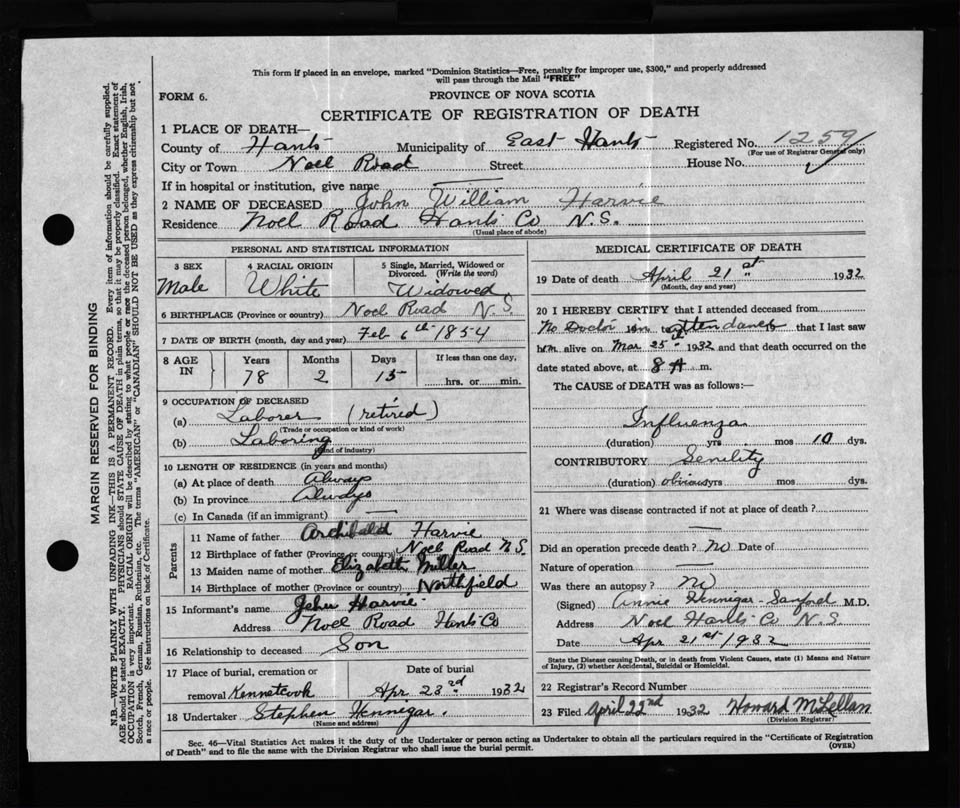 This form if placed in an envelope, marked "Dominion Statistics—Free, penalty for improper use, $300," and properly addressed
will pass through the Mail "FREE"
FORM 6.
PROVINCE OF NOVA SCOTIA
CERTIFICATE OF REGISTRATION OF DEATH
1 PLACE OF DEATH—
County of Hants Municipality of East Hants Registered No. 1259
(For use of Registrar General only)
City or Town Noel Road Street House No.
If in hospital or institution, give name
2 NAME OF DECEASED John William Harvie
Residence Noel Road Hants Co N.S.
(Usual place of abode)
PERSONAL AND STATISTICAL INFORMATION
3 SEX 4 RACIAL ORIGIN 5 Single, Married, Widowed or
Divorced. (Write the word)
Male White Widowed
6 BIRTHPLACE (Province or country) Noel Road N.S.
7 DATE OF BIRTH (month, day and year) Feb 6th 1854
8 AGE IN Years Months Days If less than one day,
78 2 15 hrs. or min.
9 OCCUPATION OF DECEASED
(a) Laborer (retired)
(Trade or occupation or kind of work)
(b) Laboring
(Kind of industry)
10 LENGTH OF RESIDENCE (in years and months)
(a) At place of death Always
(b) In province Always
(c) In Canada (if an immigrant) —
Parents
11 Name of father Archibald Harvie
12 Birthplace of father (Province or country) Noel Road N.S.
13 Maiden name of mother Elizabeth Miller
14 Birthplace of mother (Province or country) Northfield
15 Informant's name Jehu Harvie
Address Noel Road Hants Co
16 Relationship to deceased Son
17 Place of burial, cremation or Date of burial
removal Kennetcook Apr 23rd 1932
18 Undertaker Stephen Hennegar.
(Name and address)
MEDICAL CERTIFICATE OF DEATH
19 Date of death April 21st 1932
(Month, day and year)
20 I HEREBY CERTIFY that I attended deceased from
No Doctor in attendance that I last saw
him alive on Mar 25th 1932 and that death occurred on the
date stated above, at 8 A m.
The CAUSE of DEATH was as follows:—
Influenza
(duration) yrs mos 10 dys.
CONTRIBUTORY Senility
(duration) obvious yrs mos dys.
21 Where was disease contracted if not at place of death?
—
Did an operation precede death? no Date of
Nature of operation —
Was there an autopsy? no
(Signed) Annie Hennegar-Sanford M.D.
Address Noel Hants Co N.S.
Date Apr 21st 1932
State the Disease causing Death, or in death from Violent Causes, state (1) Means and Nature
of Injury, (2) whether Accidental, Suicidal or Homicidal.
22 Registrar's Record Number
23 Filed April 22nd 1932 Howard McLellan
(Division Registrar)
Sec. 46—Vital Statistics Act makes it the duty of the Undertaker or person acting as Undertaker to obtain all the particulars required in the "Certificate of Registration
of Death" and to file the same with the Division Registrar who shall issue the burial permit.
(OVER)
MARGIN RESERVED FOR BINDING
N.B.—WRITE PLAINLY WITH UNFADING INK—THIS IS A PERMANENT RECORD. Every item of information should be carefully supplied.
AGE should be stated EXACTLY. PHYSICIANS should STATE CAUSE OF DEATH in plain terms, so that it may be properly classified. Exact statement of
OCCUPATION is very important. RACIAL ORIGIN will be described by stating to what people or race the deceased person belonged, whether English, Irish,
Scotch, French, German, Russian, Ruthenian, etc. The terms "AMERICAN" or "CANADIAN" SHOULD NOT BE USED as they express citizenship but not
a race or people. See instructions on back of Certificate.